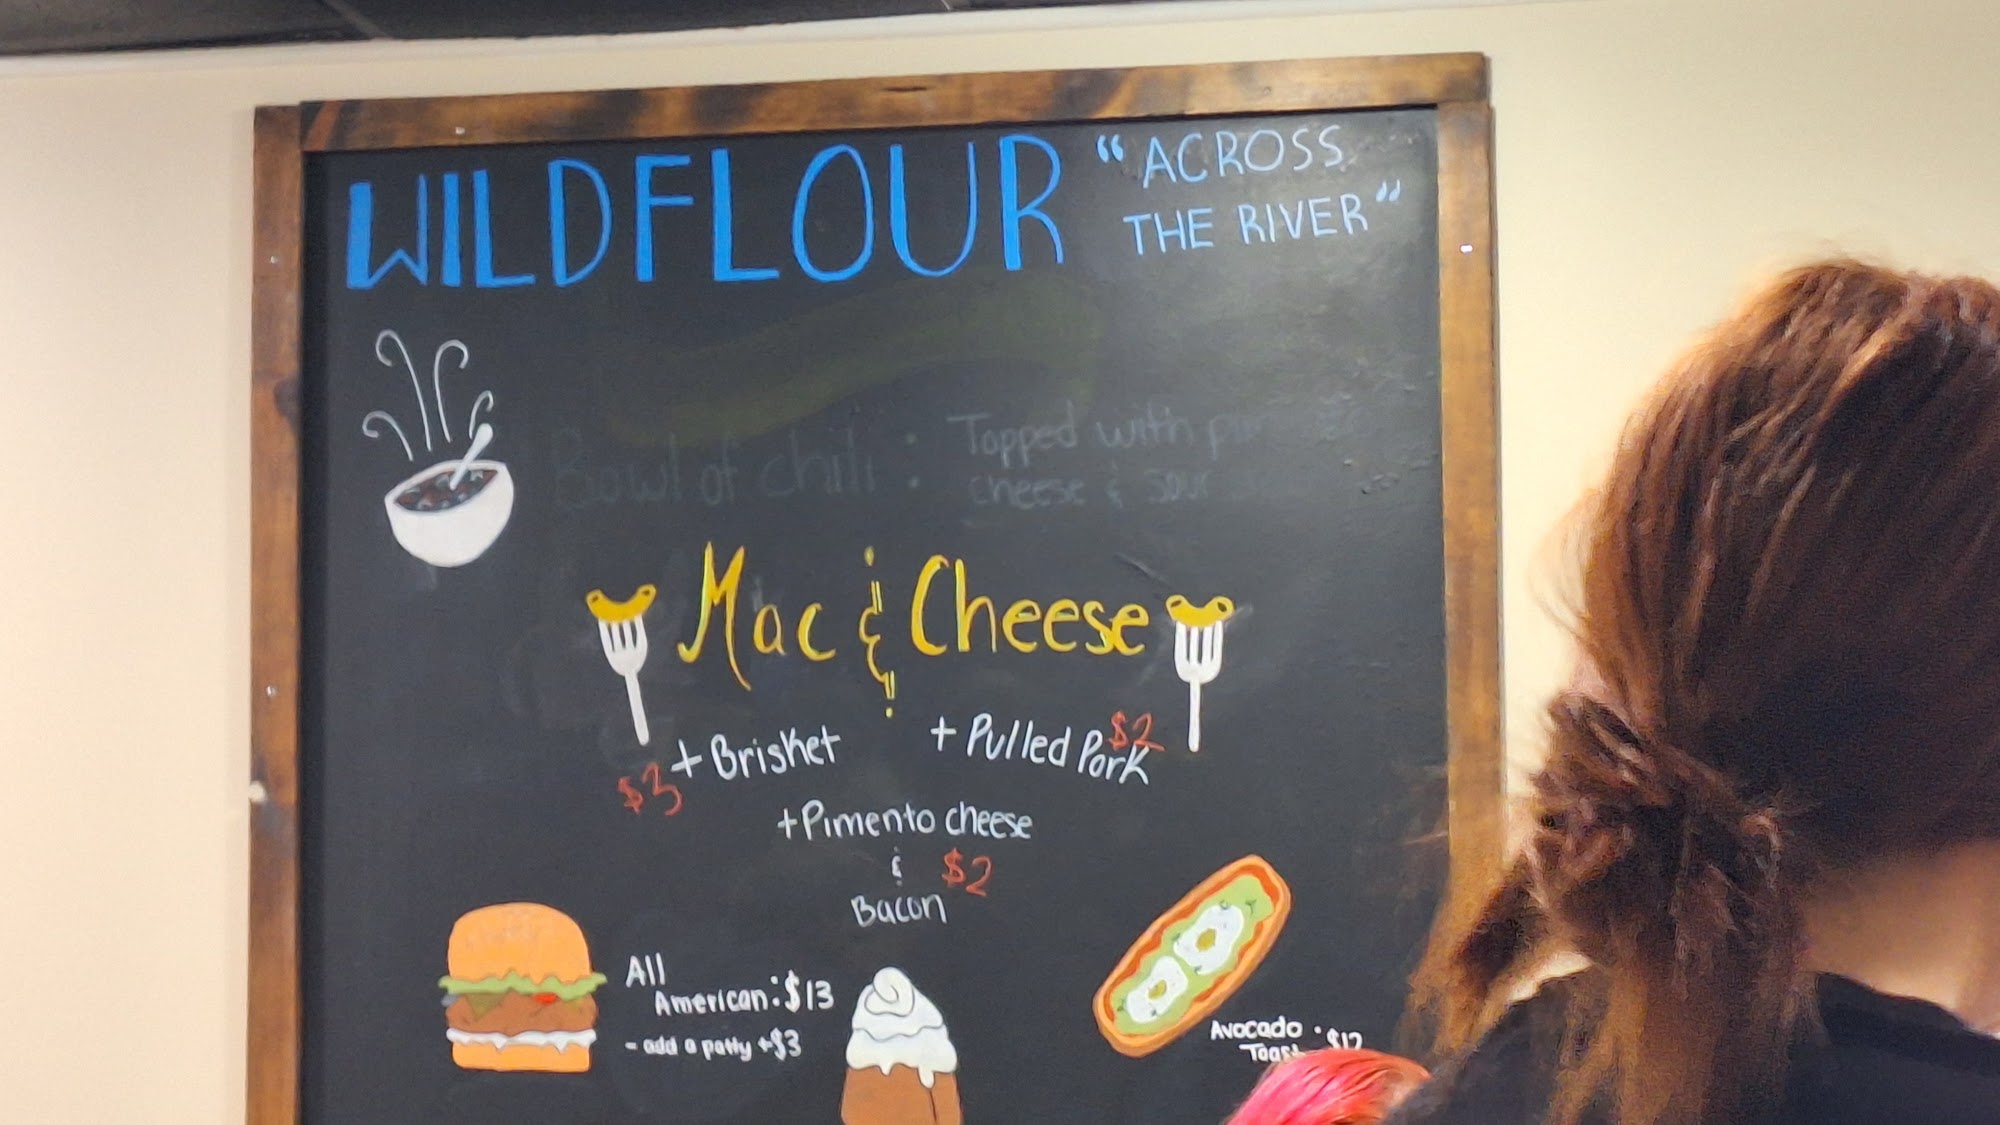 WILDFLOUR
"ACROSS
THE RIVER"
Bowl of chili :
Topped with
cheese & sour
Mac & Cheese
+ Brisket
$3
+ Pulled Pork
$2
+Pimento cheese
&
$2
Bacon
All
American: $13
- add a patty +$3
Avocado :
Toast $12